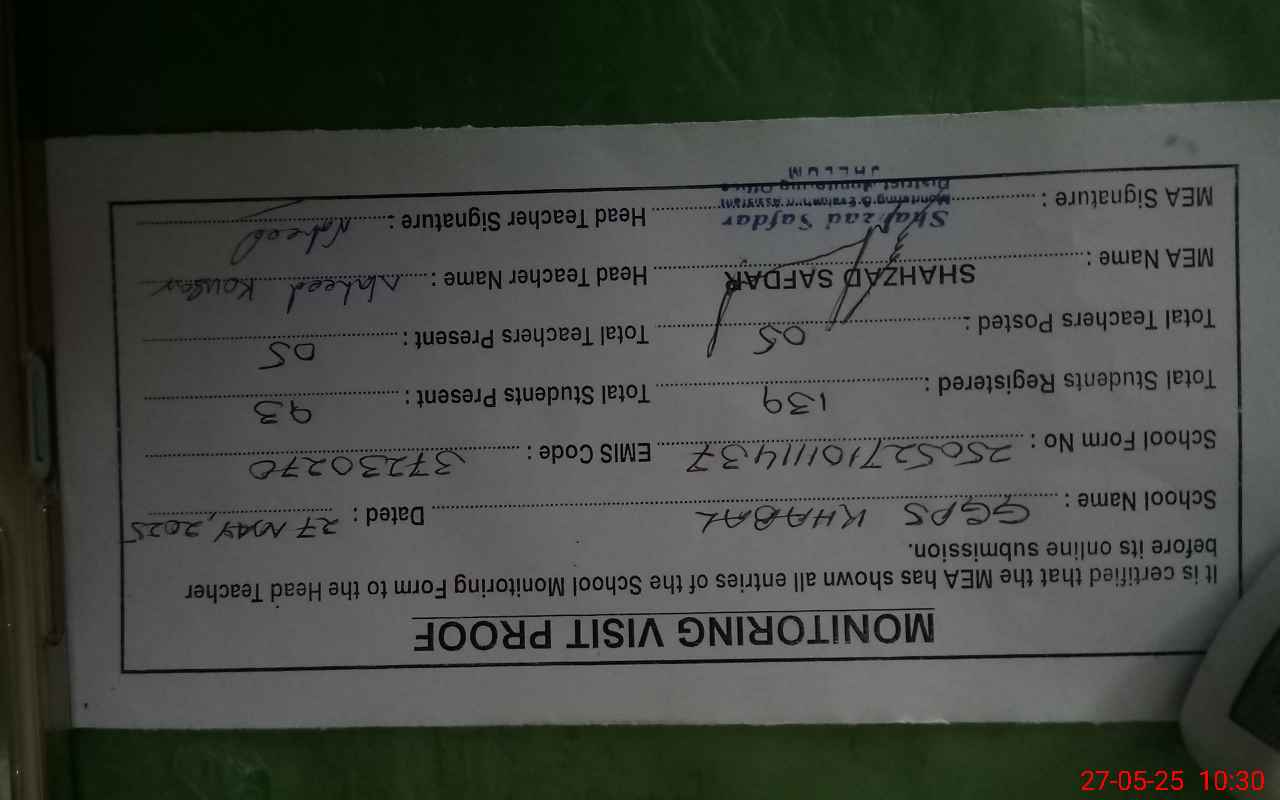 MONITORING VISIT PROOF
It is certified that the MEA has shown all entries of the School Monitoring Form to the Head Teacher
before its online submission.
School Name : GGPS KHABAL Dated : 27 MAY, 2025
School Form No : 250527101111437 EMIS Code : 37230270
Total Students Registered : 139 Total Students Present : 93
Total Teachers Posted : 05 Total Teachers Present : 05
MEA Name : SHAHZAD SAFDAR Head Teacher Name : Naheed Kousar
MEA Signature : Head Teacher Signature : Naheed
Shahzad Safdar
Monitoring & Evaluation Assistant
District Monitoring Office
JHELUM
27-05-25 10:30